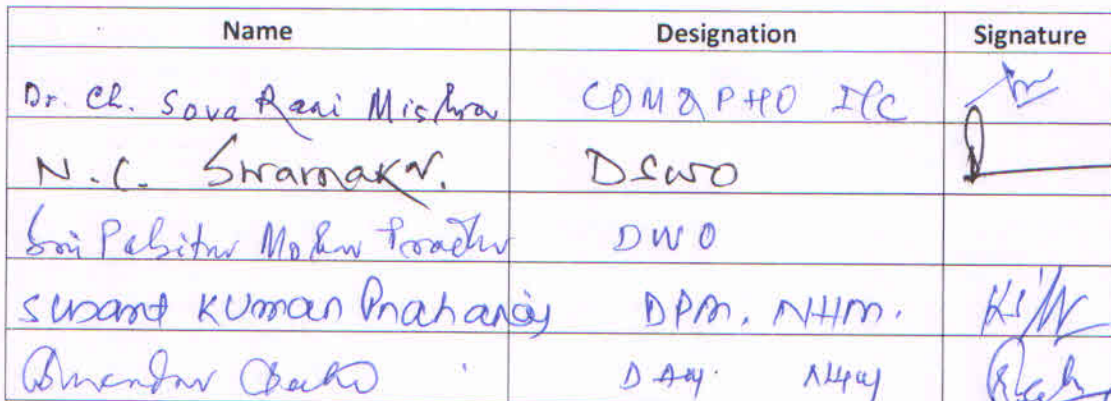 Name Designation Signature
Dr. Ch. Sova Rani Mishra CDM & PHO I/C
N.C. Swarnakar. DSWO
Sri Pabitra Mohan DWO
Susant Kumar Praharaj DPM, NHM.
DAM NHM